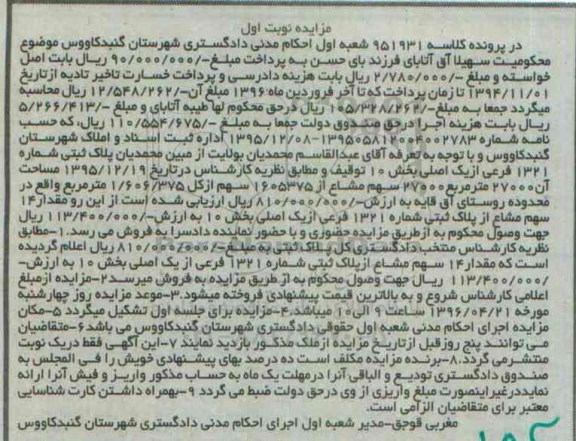 مزایده نوبت اول
در پرونده کلاسه ۹۵۱۹۳۱ شعبه اول احکام مدنی دادگستری شهرستان گنبدکاووس موضوع
محکومیت سهیلا آق آتابای فرزند بای حسن به پرداخت مبلغ-/۹۰/۰۰۰/۰۰۰ ریال بابت اصل
خواسته و مبلغ -/۲/۷۸۰/۰۰۰ ریال بابت هزینه دادرسی و پرداخت خسارت تاخیر تادیه ازتاریخ
۱۳۹۴/۱۱/۰۱ تا زمان پرداخت که تا آخر فروردین ماه ۱۳۹۶ مبلغ آن-/۱۲/۵۴۸/۲۶۲ ریال محاسبه
میگردد جمعا به مبلغ-/۱۰۵/۳۲۸/۲۶۲ ریال درحق محکوم لها طیبه آتابای و مبلغ -/۵/۲۶۶/۴۱۳
ریال بابت هزینه اجرا درحق صندوق دولت جمعا به مبلغ -/۱۱۰/۵۵۴/۶۷۵ ریال، که حسب
نامه شماره ۱۳۹۵۰۵۸۱۲۰۰۴۰۰۲۷۸۳-۱۳۹۵/۱۲/۰۸ اداره ثبت اسناد و املاک شهرستان
گنبدکاووس و با توجه به تعرفه آقای عبدالقاسم محمدیان بولایت از مبین محمدیان پلاک ثبتی شماره
۱۳۲۱ فرعی ازیک اصلی بخش ۱۰ توقیف و مطابق نظریه کارشناس درتاریخ ۱۳۹۵/۱۲/۱۹ مساحت
آن۲۷۰۰۰ مترمربع-۲۷۰۰۰ سهم مشاع از ۱۶۰۵۳۷۵ سهم ازکل ۱/۶۰۶/۳۷۵ مترمربع واقع در
محدوده روستای آق قایه به ارزش-/۸۱۰/۰۰۰/۰۰۰ ریال ارزیابی شده است از این رو مقدار۱۴
سهم مشاع از پلاک ثبتی شماره ۱۳۲۱ فرعی ازیک اصلی بخش ۱۰ به ارزش-/۱۱۳/۴۰۰/۰۰۰ ریال
جهت وصول محکوم به ازطریق مزایده حضوری و با حضور نماینده دادسرا به فروش می رسد.۱-مطابق
نظریه کارشناس منتخب دادگستری کل پلاک ثبتی به مبلغ-/۸۱۰/۰۰۰/۰۰۰ ریال اعلام گردیده
است که مقدار۱۴ سهم مشاع ازپلاک ثبتی شماره ۱۳۲۱ فرعی از یک اصلی بخش ۱۰ به ارزش-
/۱۱۳/۴۰۰/۰۰۰ ریال جهت وصول محکوم به از طریق مزایده به فروش میرسد۲-مزایده ازمبلغ
اعلامی کارشناس شروع و به بالاترین قیمت پیشنهادی فروخته میشود.۳-موعد مزایده روز چهارشنبه
مورخه ۱۳۹۶/۰۴/۲۱ ساعت ۹ الی۱۰ میباشد.۴-مزایده برای جلسه اول تشکیل میگردد ۵-مکان
مزایده اجرای احکام مدنی شعبه اول حقوقی دادگستری شهرستان گنبدکاووس می باشد۶-متقاضیان
می توانند پنج روزقبل ازتاریخ مزایده ازملک مذکور بازدید نمایند ۷-این آگهی فقط دریک نوبت
منتشرمی گردد.۸-برنده مزایده مکلف است ده درصد بهای پیشنهادی خویش را فی المجلس به
صندوق دادگستری تودیع و الباقی آنرا درمهلت یک ماه به حساب مذکور واریز و فیش آنرا ارائه
نمایددرغیراینصورت مبلغ واریزی از وی درحق دولت ضبط می گردد ۹-بهمراه داشتن کارت شناسایی
معتبر برای متقاضیان الزامی است.
مغربی قوجق-مدیر شعبه اول اجرای احکام مدنی دادگستری شهرستان گنبدکاووس